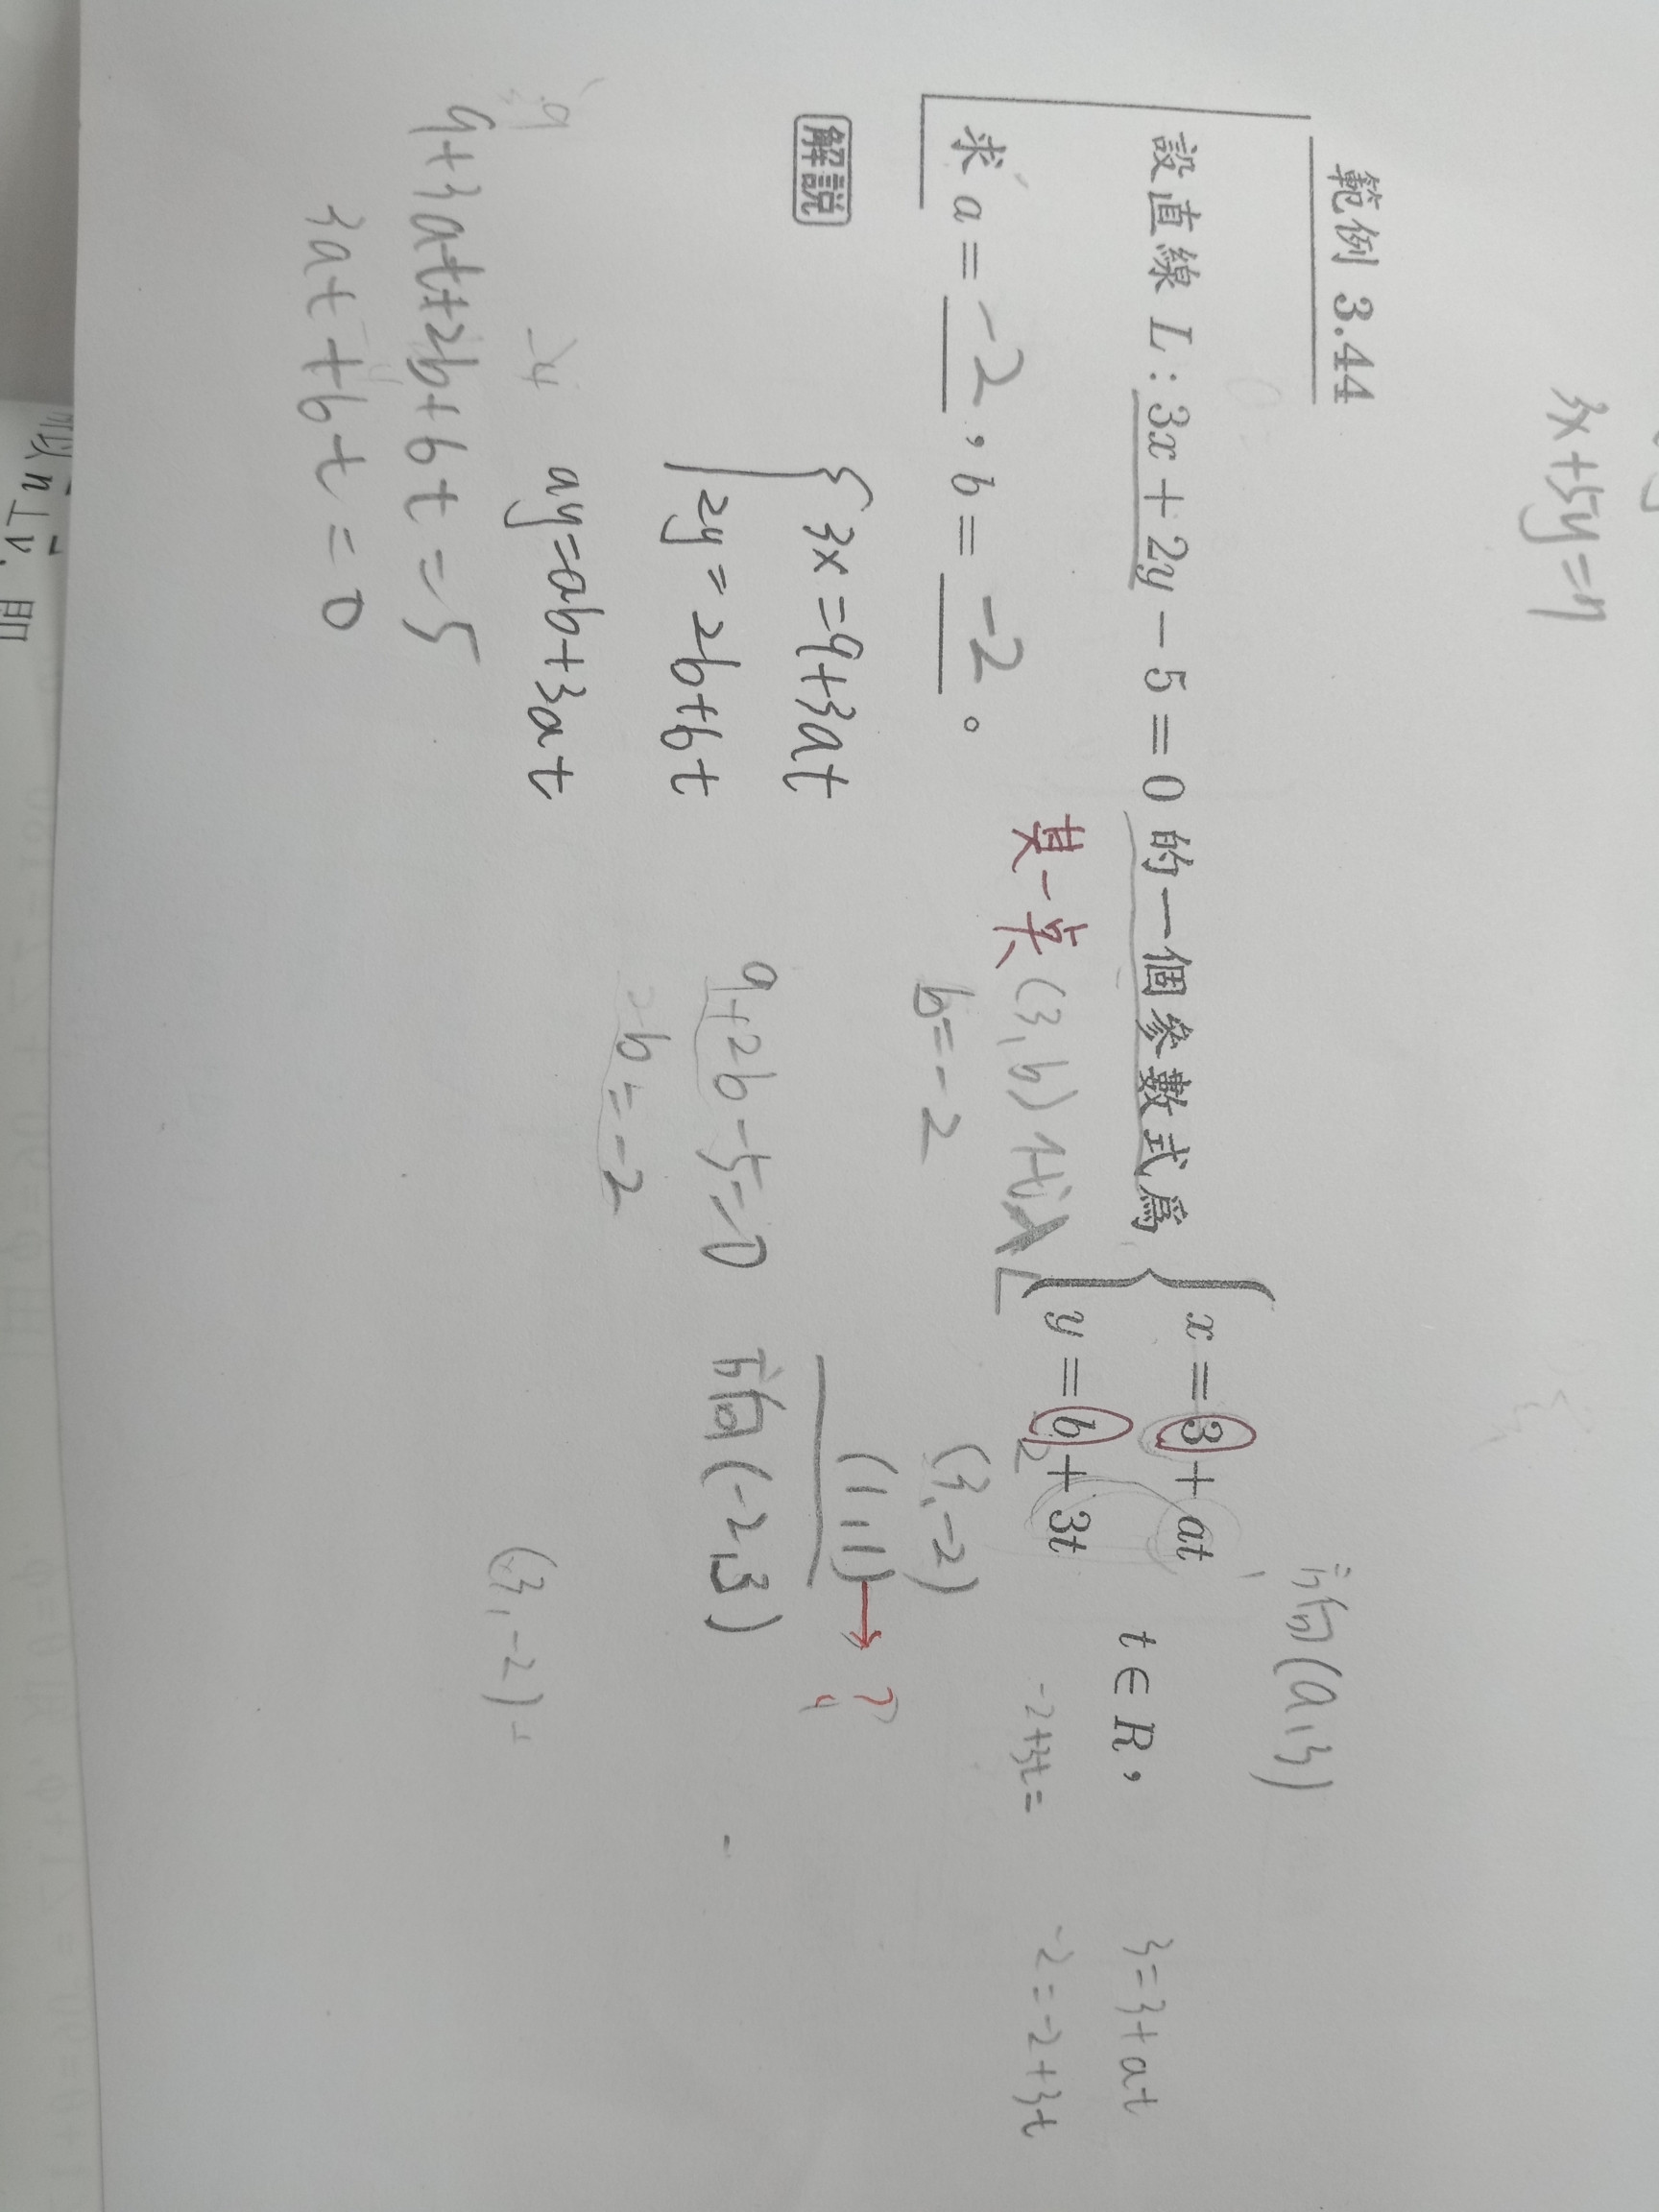 3x+5y=7
範例 3.44
方向(a,3)
設直線 L : 3x + 2y − 5 = 0 的一個參數式為 { x = 3 + at
y = b + 3t
t ∈ R,
3=3+at
-2+3t=
-2=-2+3t
其一点 (3,b) 代入 L
求 a = -2 , b = -2 。
b=-2
(3,-2)
(1,1) → ?
解說
{ 3x=9+3at
2y=2b+6t
9+2b-5=0
方向(-2,3)
b=-2
ay=ab+3at
(3,-2)
9+3at+2b+6t=5
3at+6t=0
所以 n⊥v, 即